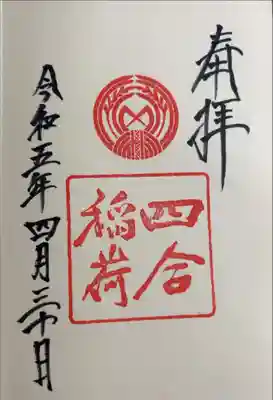 奉拝
四合
稲荷
令和五年四月三十日